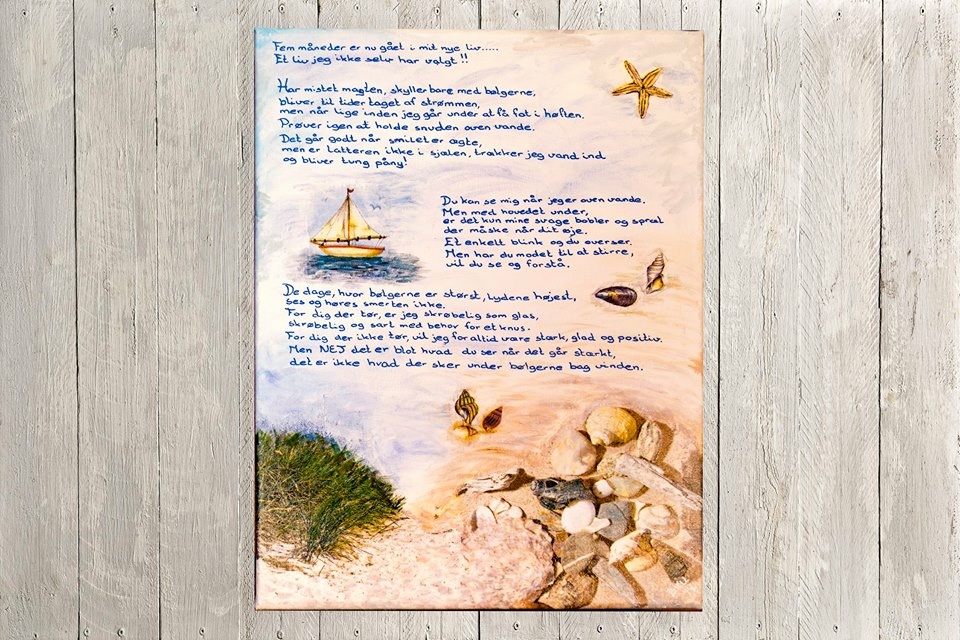 Fem måneder er nu gået i mit nye liv.....
Et liv jeg ikke selv har valgt!!
Har mistet magten, skyller bare med bølgerne,
bliver til tider taget af strømmen,
men når lige inden jeg går under at få fat i høften.
Prøver igen at holde snuden oven vande.
Det går godt når smilet er ægte,
men er latteren ikke i sjælen, trækker jeg vand ind
og bliver tung påny!
Du kan se mig når jeg er oven vande.
Men med hovedet under,
er det kun mine svage bobler og spræl
der måske når dit øje.
Et enkelt blink og du overser.
Men har du modet til at stirre,
vil du se og forstå.
De dage, hvor bølgerne er størst, lydene højest,
ses og høres smerten ikke.
For dig der tør, er jeg skrøbelig som glas,
skrøbelig og sart med behov for et knus.
For dig der ikke tør, vil jeg for altid være stærk, glad og positiv.
Men NEJ det er blot hvad du ser når det går stærkt,
det er ikke hvad der sker under bølgerne bag vinden.